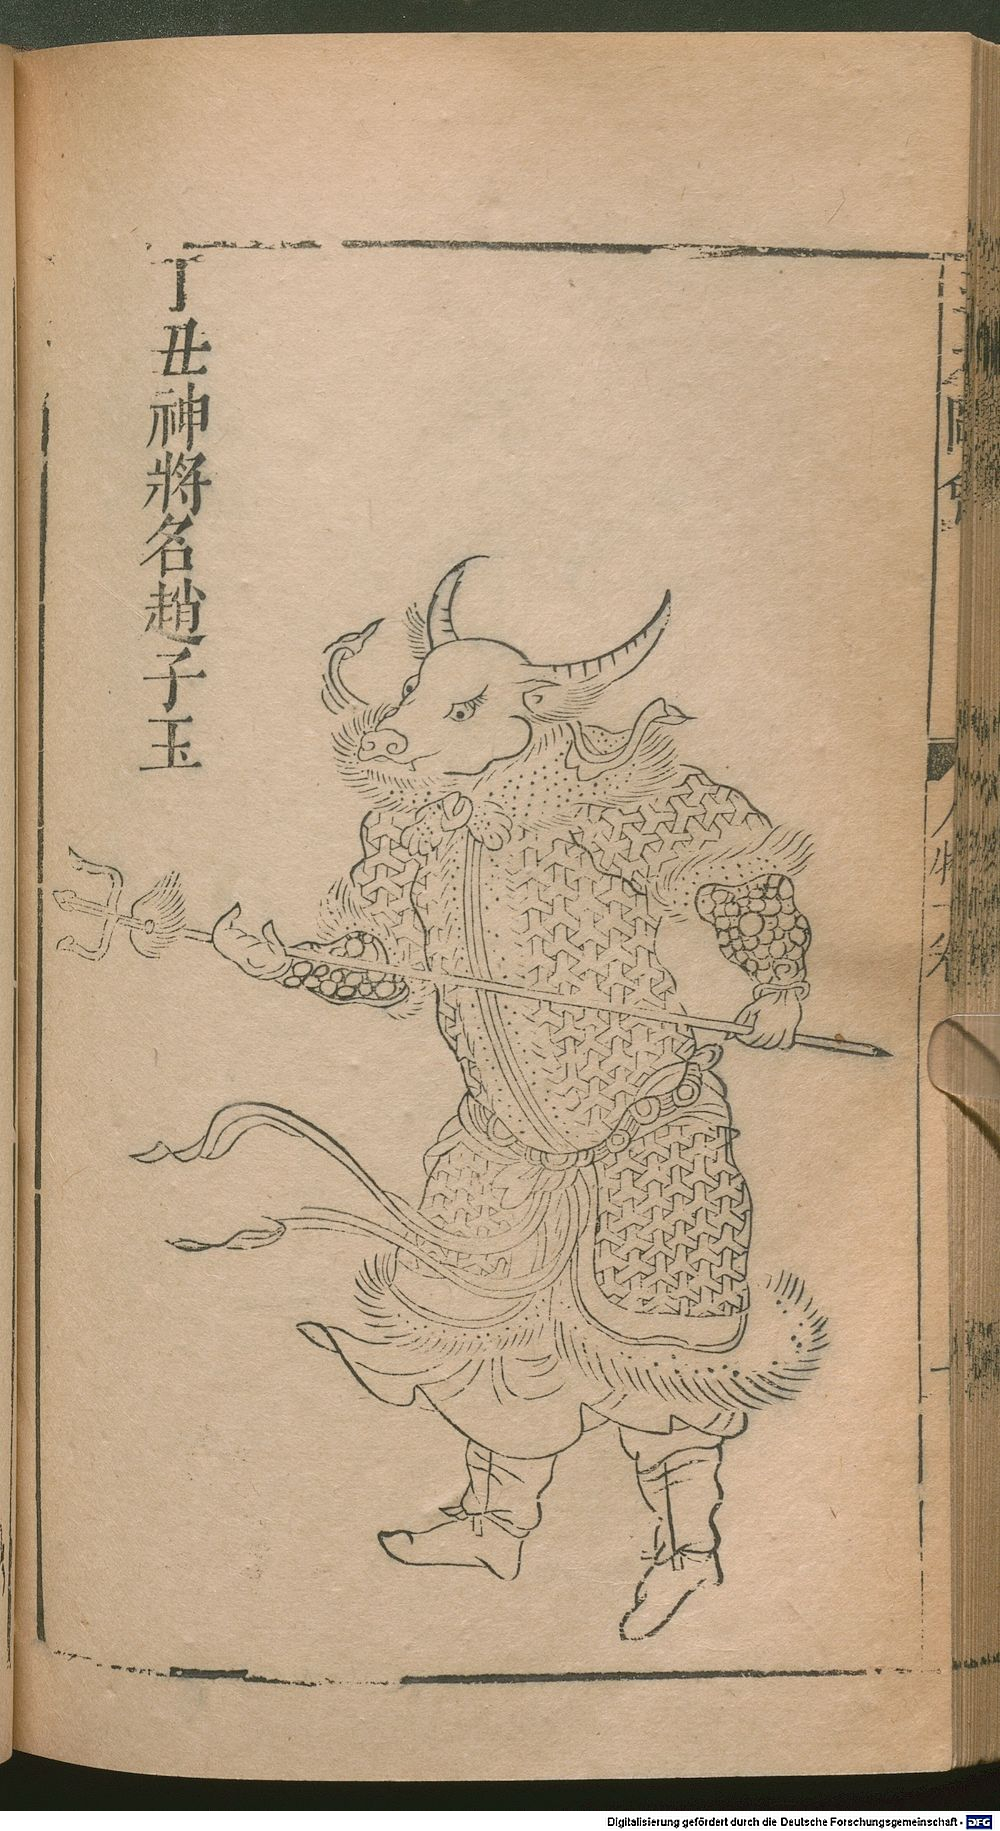 丁丑神將名趙子玉
圖會
人物
Digitalisierung gefördert durch die Deutsche Forschungsgemeinschaft - DFG